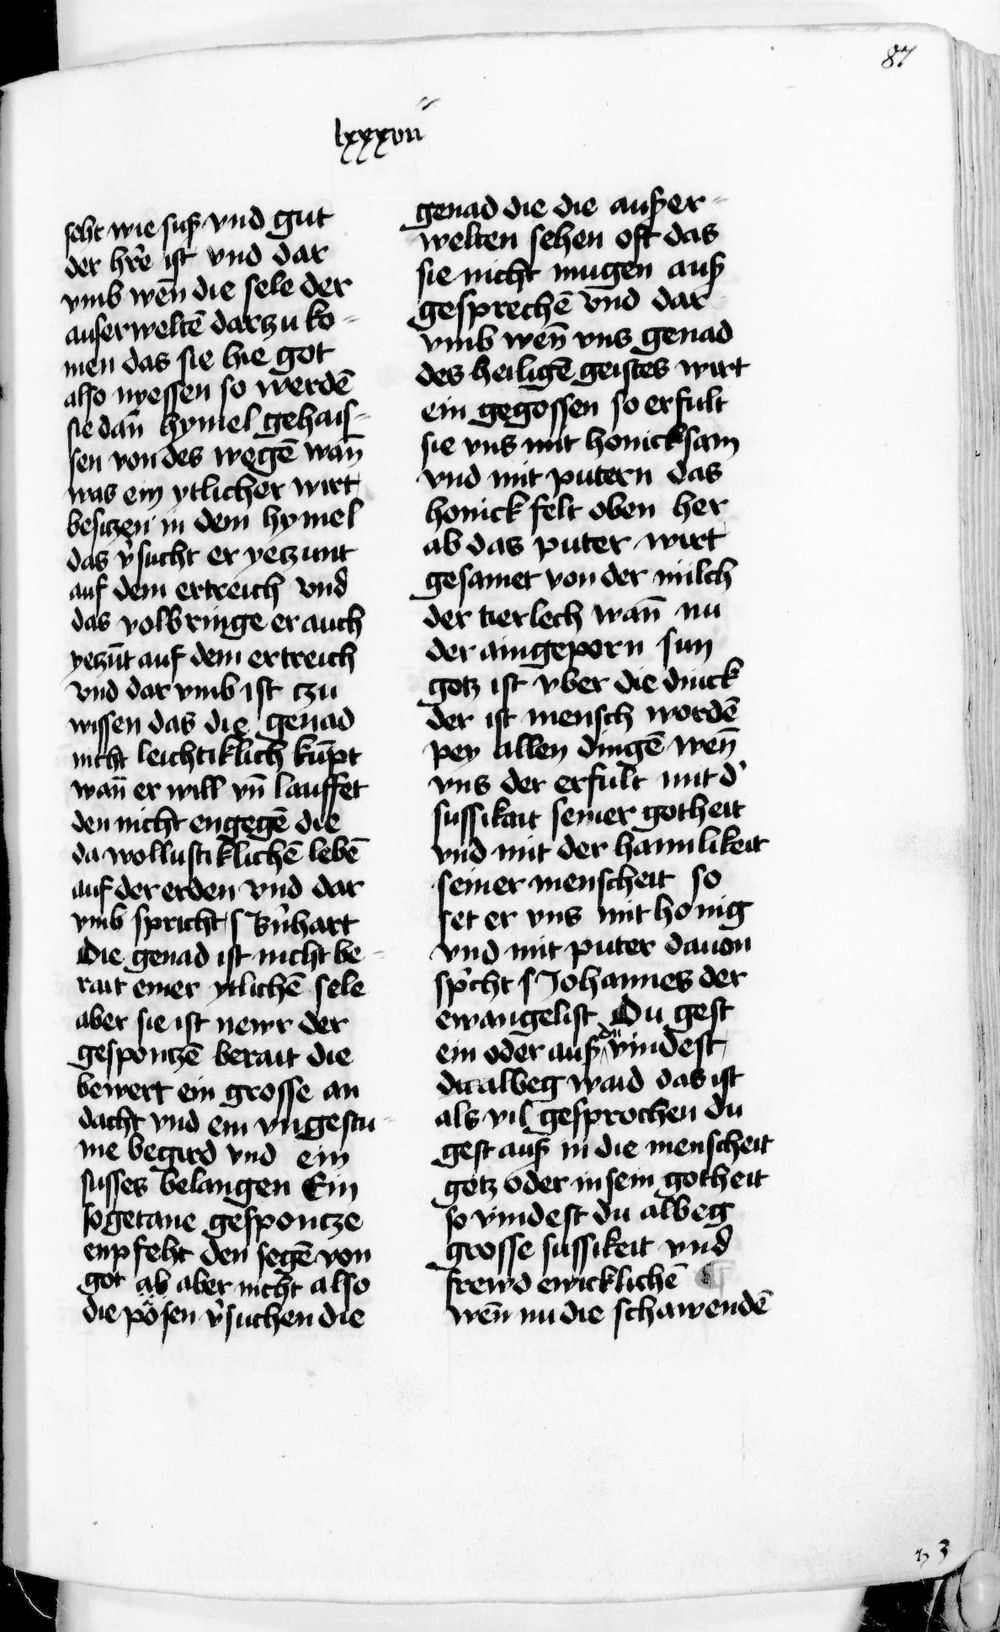 87
lxxxvii
seht wie suß vnd gut
der hr̄e ist vnd dar
vmb wen̄ die sele der
auserwelte͂ darzu ko-
men das sie hie got
also nyessen so werde͂
sie dan̄ hymel gehais-
sen von des wege͂ wan̄
was ein ytlicher wirt
besitzen in dem hymel
das v͛sucht er yetzunt
auf dem ertreich vnd
das volbringe er auch
yetzūt auf dem ertreich
vnd dar vmb ist czu
wissen das die genad
nicht leichtiklich kūpt
wan̄ er will vn̄ lauffet
den nicht engege͂ die
da wollustikliche͂ lebe͂
auf der erden vnd dar
vmb spricht s b͛nhart
Die genad ist nicht be-
rait einer ytliche͂ sele
aber sie ist newr der
gespontze͂ berait die
bewert ein grosse an
dacht vnd ein vngestu-
me begird vnd ein
susses belangen Ein
sogetane gespontze
enpfeht den sege͂ von
got ab aber nicht also
die pösen v͛suchen die
genad die die außer-
welten sehen oft das
sie nicht mugen auß
gespreche͂ vnd dar
vmb wen̄ vns genad
des heilige͂ geistes wirt
ein gegossen so erfult
sie vns mit honicksam
vnd mit putern das
honick felt oben her
ab das puter wirt
gesamet von der milch
der tierlech wan̄ nu
der aingeporn sun
gotz ist vber die dinck
der ist mensch worde͂
pey allen dinge͂ wen̄
vns der erfult mit d͛
sussikait seiner gotheit
vnd mit der hamlikeit
seiner menscheit so
set er vns mit honig
vnd mit puter dauon
sp͛cht s Johannes der
ewangelist Du gest
ein oder auß du vindest
du albeg waid das ist
als vil gesprochen du
gest auß in die menscheit
gotz oder in sein gotheit
so vindest du albeg
grosse sussikeit vnd
frewd ewickliche͂
wen̄ nu die schawende͂